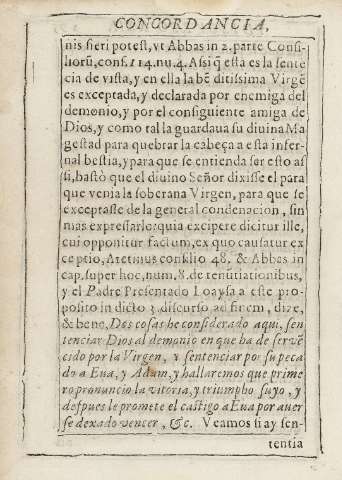 CONCORDANCIA,
nis fieri potest, vt Abbas in 2. parte Consi-
liorũ, cons. 114. nu. 4. Assi q̃ esta es la sentẽ
cia de vista, y en ella la bẽ ditissima Virgẽ
es exceptada, y declarada por enemiga del
demonio, y por el consiguiente amiga de
Dios, y como tal la guardaua su diuina Ma
gestad para quebrar la cabeça a esta infer-
nal bestia, y para que se entienda ser esto as
si, bastò que el diuino Señor dixisse el para
que venia la soberana Virgen, para que se
exceptasse de la general condenacion, sin
mas expressarlo: quia excipere dicitur ille,
cui opponitur factum, ex quo causatur ex
ceptio, Aretinus consilio 48, & Abbas in
cap. super hoc, num. 8. de renũtiationibus,
y el Padre Presentado Loaysa a este pro-
posito in dicto 3. discurso ad finem, dize,
& bene, Dos cosas he considerado aqui, sen
tenciar Dios al demonio en que ha de ser vẽ
cido por la Virgen, y sentenciar por su peca
do a Eua, y Adam, y hallaremos que prime
ro pronuncio la vitoria, y triumpho suyo, y
despues le promete el castigo a Eua por auer
se dexado vencer, &c. Veamos si ay sen-
tentia